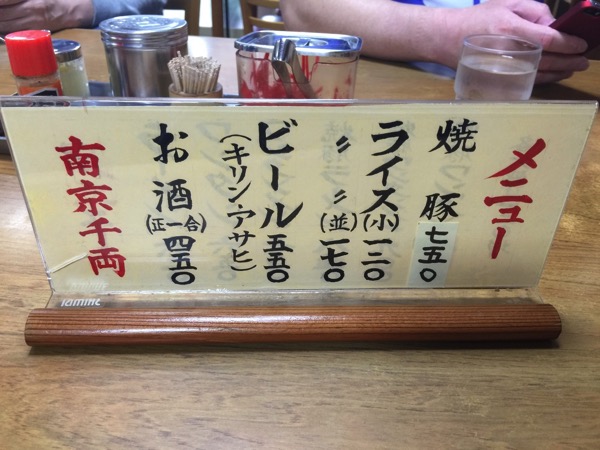 メニュー
焼豚 七五〇
ライス(小) 一三〇
〃 〃(並) 一七〇
ビール 五五〇
(キリン・アサヒ)
お酒(正一合) 四五〇
南京千両